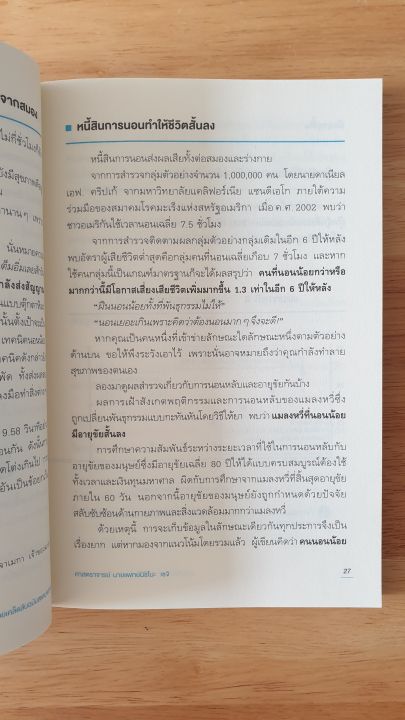 จากสมอง
ไม่กี่ชั่วโมงก็
นั่นหมายความ
9.58 วินาทีอย่
หนี้สินการนอนทำให้ชีวิตสั้นลง
หนี้สินการนอนส่งผลเสียทั้งต่อสมองและร่างกาย
จากการสำรวจกลุ่มตัวอย่างจำนวน 1,000,000 คน โดยนายแดเนียล
เอฟ. คริปเก้ จากมหาวิทยาลัยแคลิฟอร์เนีย แซนดีเอโก ภายใต้ความ
ร่วมมือของสมาคมโรคมะเร็งแห่งสหรัฐอเมริกา เมื่อ ค.ศ. 2002 พบว่า
ชาวอเมริกันใช้เวลานอนเฉลี่ย 7.5 ชั่วโมง
จากการสำรวจติดตามผลกลุ่มตัวอย่างกลุ่มเดิมในอีก 6 ปีให้หลัง
พบอัตราผู้เสียชีวิตต่ำสุดคือกลุ่มคนที่นอนเฉลี่ยเกือบ 7 ชั่วโมง และหาก
ใช้คนกลุ่มนี้เป็นเกณฑ์มาตรฐานก็จะได้ผลสรุปว่า คนที่นอนน้อยกว่าหรือ
มากกว่านี้มีโอกาสเสี่ยงเสียชีวิตเพิ่มมากขึ้น 1.3 เท่าในอีก 6 ปีให้หลัง
“ฝืนนอนน้อยทั้งที่พันธุกรรมไม่ให้”
“นอนเยอะเกินเพราะคิดว่าต้องนอนมาก ๆ จึงจะดี”
หากคุณเป็นคนหนึ่งที่เข้าข่ายลักษณะใดลักษณะหนึ่งตามตัวอย่าง
ด้านบน ขอให้พึงระวังเอาไว้ เพราะนั่นอาจหมายถึงว่าคุณกำลังทำลาย
สุขภาพของตนเอง
ลองมาดูผลสำรวจเกี่ยวกับการนอนหลับและอายุขัยกันบ้าง
ผลการเฝ้าสังเกตพฤติกรรมและการนอนหลับของแมลงหวี่ซึ่ง
ถูกเปลี่ยนพันธุกรรมแบบกะทันหันโดยวิธีให้ยา พบว่า แมลงหวี่ที่นอนน้อย
มีอายุขัยสั้นลง
การศึกษาความสัมพันธ์ระหว่างระยะเวลาที่ใช้ในการนอนหลับกับ
อายุขัยของมนุษย์ซึ่งมีอายุขัยเฉลี่ย 80 ปีให้ได้แบบครบสมบูรณ์ต้องใช้
ทั้งเวลาและเงินทุนมหาศาล ผิดกับการศึกษาจากแมลงหวี่ที่สิ้นสุดอายุขัย
ภายใน 60 วัน นอกจากนี้อายุขัยของมนุษย์ยังถูกกำหนดด้วยปัจจัย
สลับซับซ้อนด้านกายภาพและสิ่งแวดล้อมมากกว่าแมลงหวี่
ด้วยเหตุนี้ การจะเก็บข้อมูลในลักษณะเดียวกันทุกประการจึงเป็น
เรื่องยาก แต่หากมองจากแนวโน้มโดยรวมแล้ว ผู้เขียนคิดว่า คนนอนน้อย
ศาสตราจารย์ นายแพทย์นิชิโนะ เซจิ
27